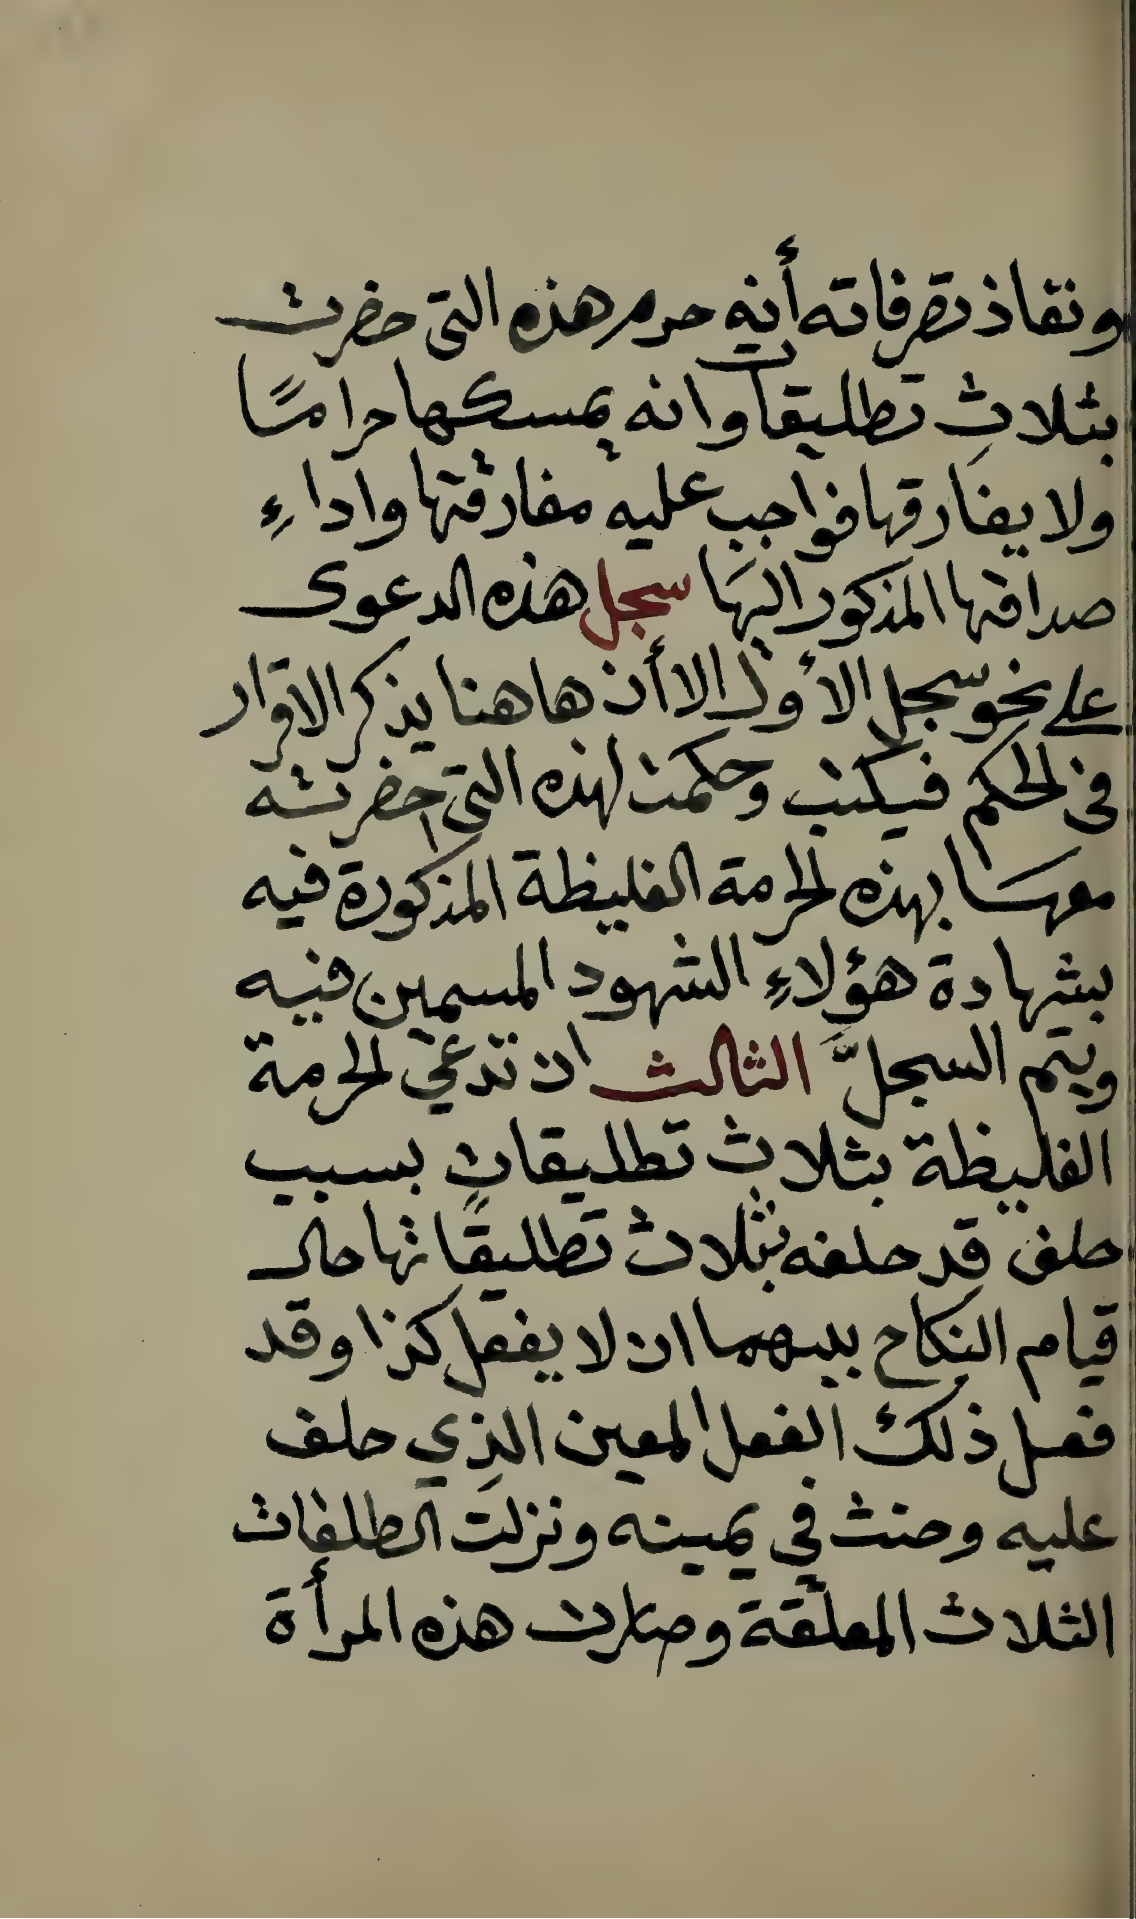 ونفاذ تصرفاته أنه حرم هذه التى حضرت
بثلاث تطليقات وانه يمسكها حراما
ولا يفارقها فواجب عليه مفارقتها واداء
صداقها المذكور اليها سجل هذه الدعوى
على نحو سجل الأول الا أن هاهنا يذكر الاقرار
فى الحكم فيكتب وحكمت لهذه التى احضرته
معها بهذه الحرمة الغليظة المذكورة فيه
بشهادة هؤلاء الشهود المسمين فيه
ويتم السجل الثالث ان تدعي الحرمة
الغليظة بثلاث تطليقات بسبب
حلف قد حلفه بثلاث تطليقاتها حال
قيام النكاح بينهما ان لا يفعل كذا وقد
فعل ذلك الفعل المعين الذي حلف
عليه وحنث في يمينه ونزلت الطلقات
الثلاث المعلقة وصارت هذه المرأة